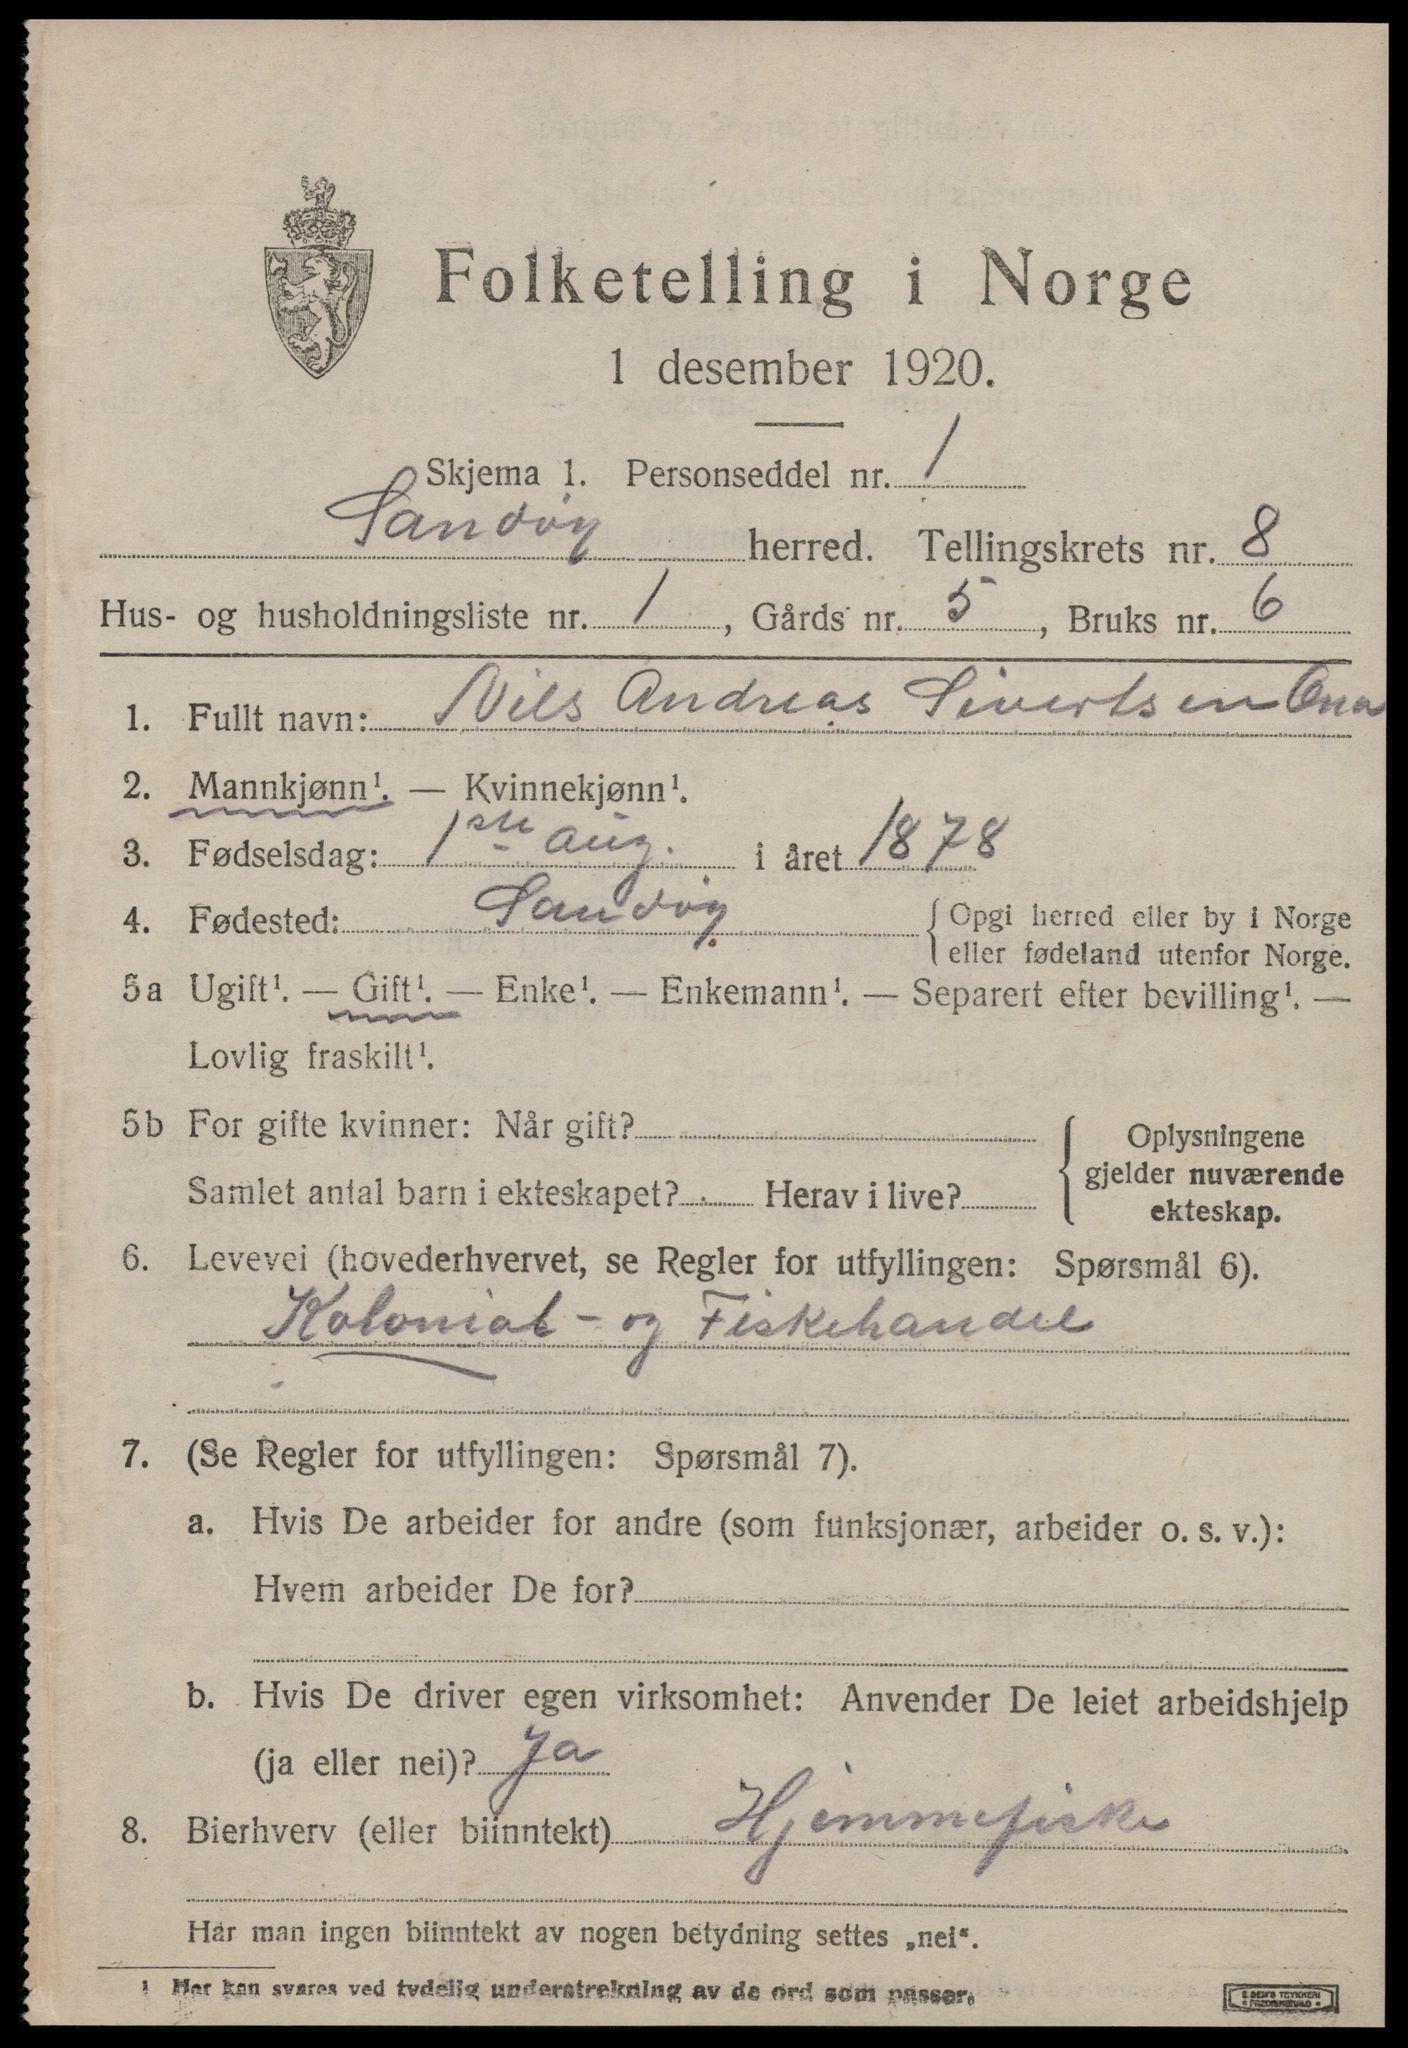 Folketelling i Norge
1 desember 1920.
Skjema 1. Personseddel nr. 1
Sandøy herred. Tellingskrets nr. 8
Hus- og husholdningsliste nr. 1, Gårds nr. 5, Bruks nr. 6
1. Fullt navn: Nils Andreas Sivertsen Ona
2. Mannkjønn¹. — Kvinnekjønn¹.
3. Fødselsdag: 1ste aug. i året 1878
4. Fødested: Sandøy { Opgi herred eller by i Norge
eller fødeland utenfor Norge.
5a Ugift¹. — Gift¹. — Enke¹. — Enkemann¹. — Separert efter bevilling¹. —
Lovlig fraskilt¹.
5b For gifte kvinner: Når gift?
Samlet antal barn i ekteskapet? Herav i live?
{ Oplysningene
gjelder nuværende
ekteskap.
6. Levevei (hovederhvervet, se Regler for utfyllingen: Spørsmål 6).
Kolonial- og Fiskehandel
7. (Se Regler for utfyllingen: Spørsmål 7).
a. Hvis De arbeider for andre (som funksjonær, arbeider o. s. v.):
Hvem arbeider De for?
b. Hvis De driver egen virksomhet: Anvender De leiet arbeidshjelp
(ja eller nei)? Ja
8. Bierhverv (eller biinntekt) Hjemmefiske
Har man ingen biinntekt av nogen betydning settes „nei“.
1 Her kan svares ved tydelig understrekning av de ord som passer.